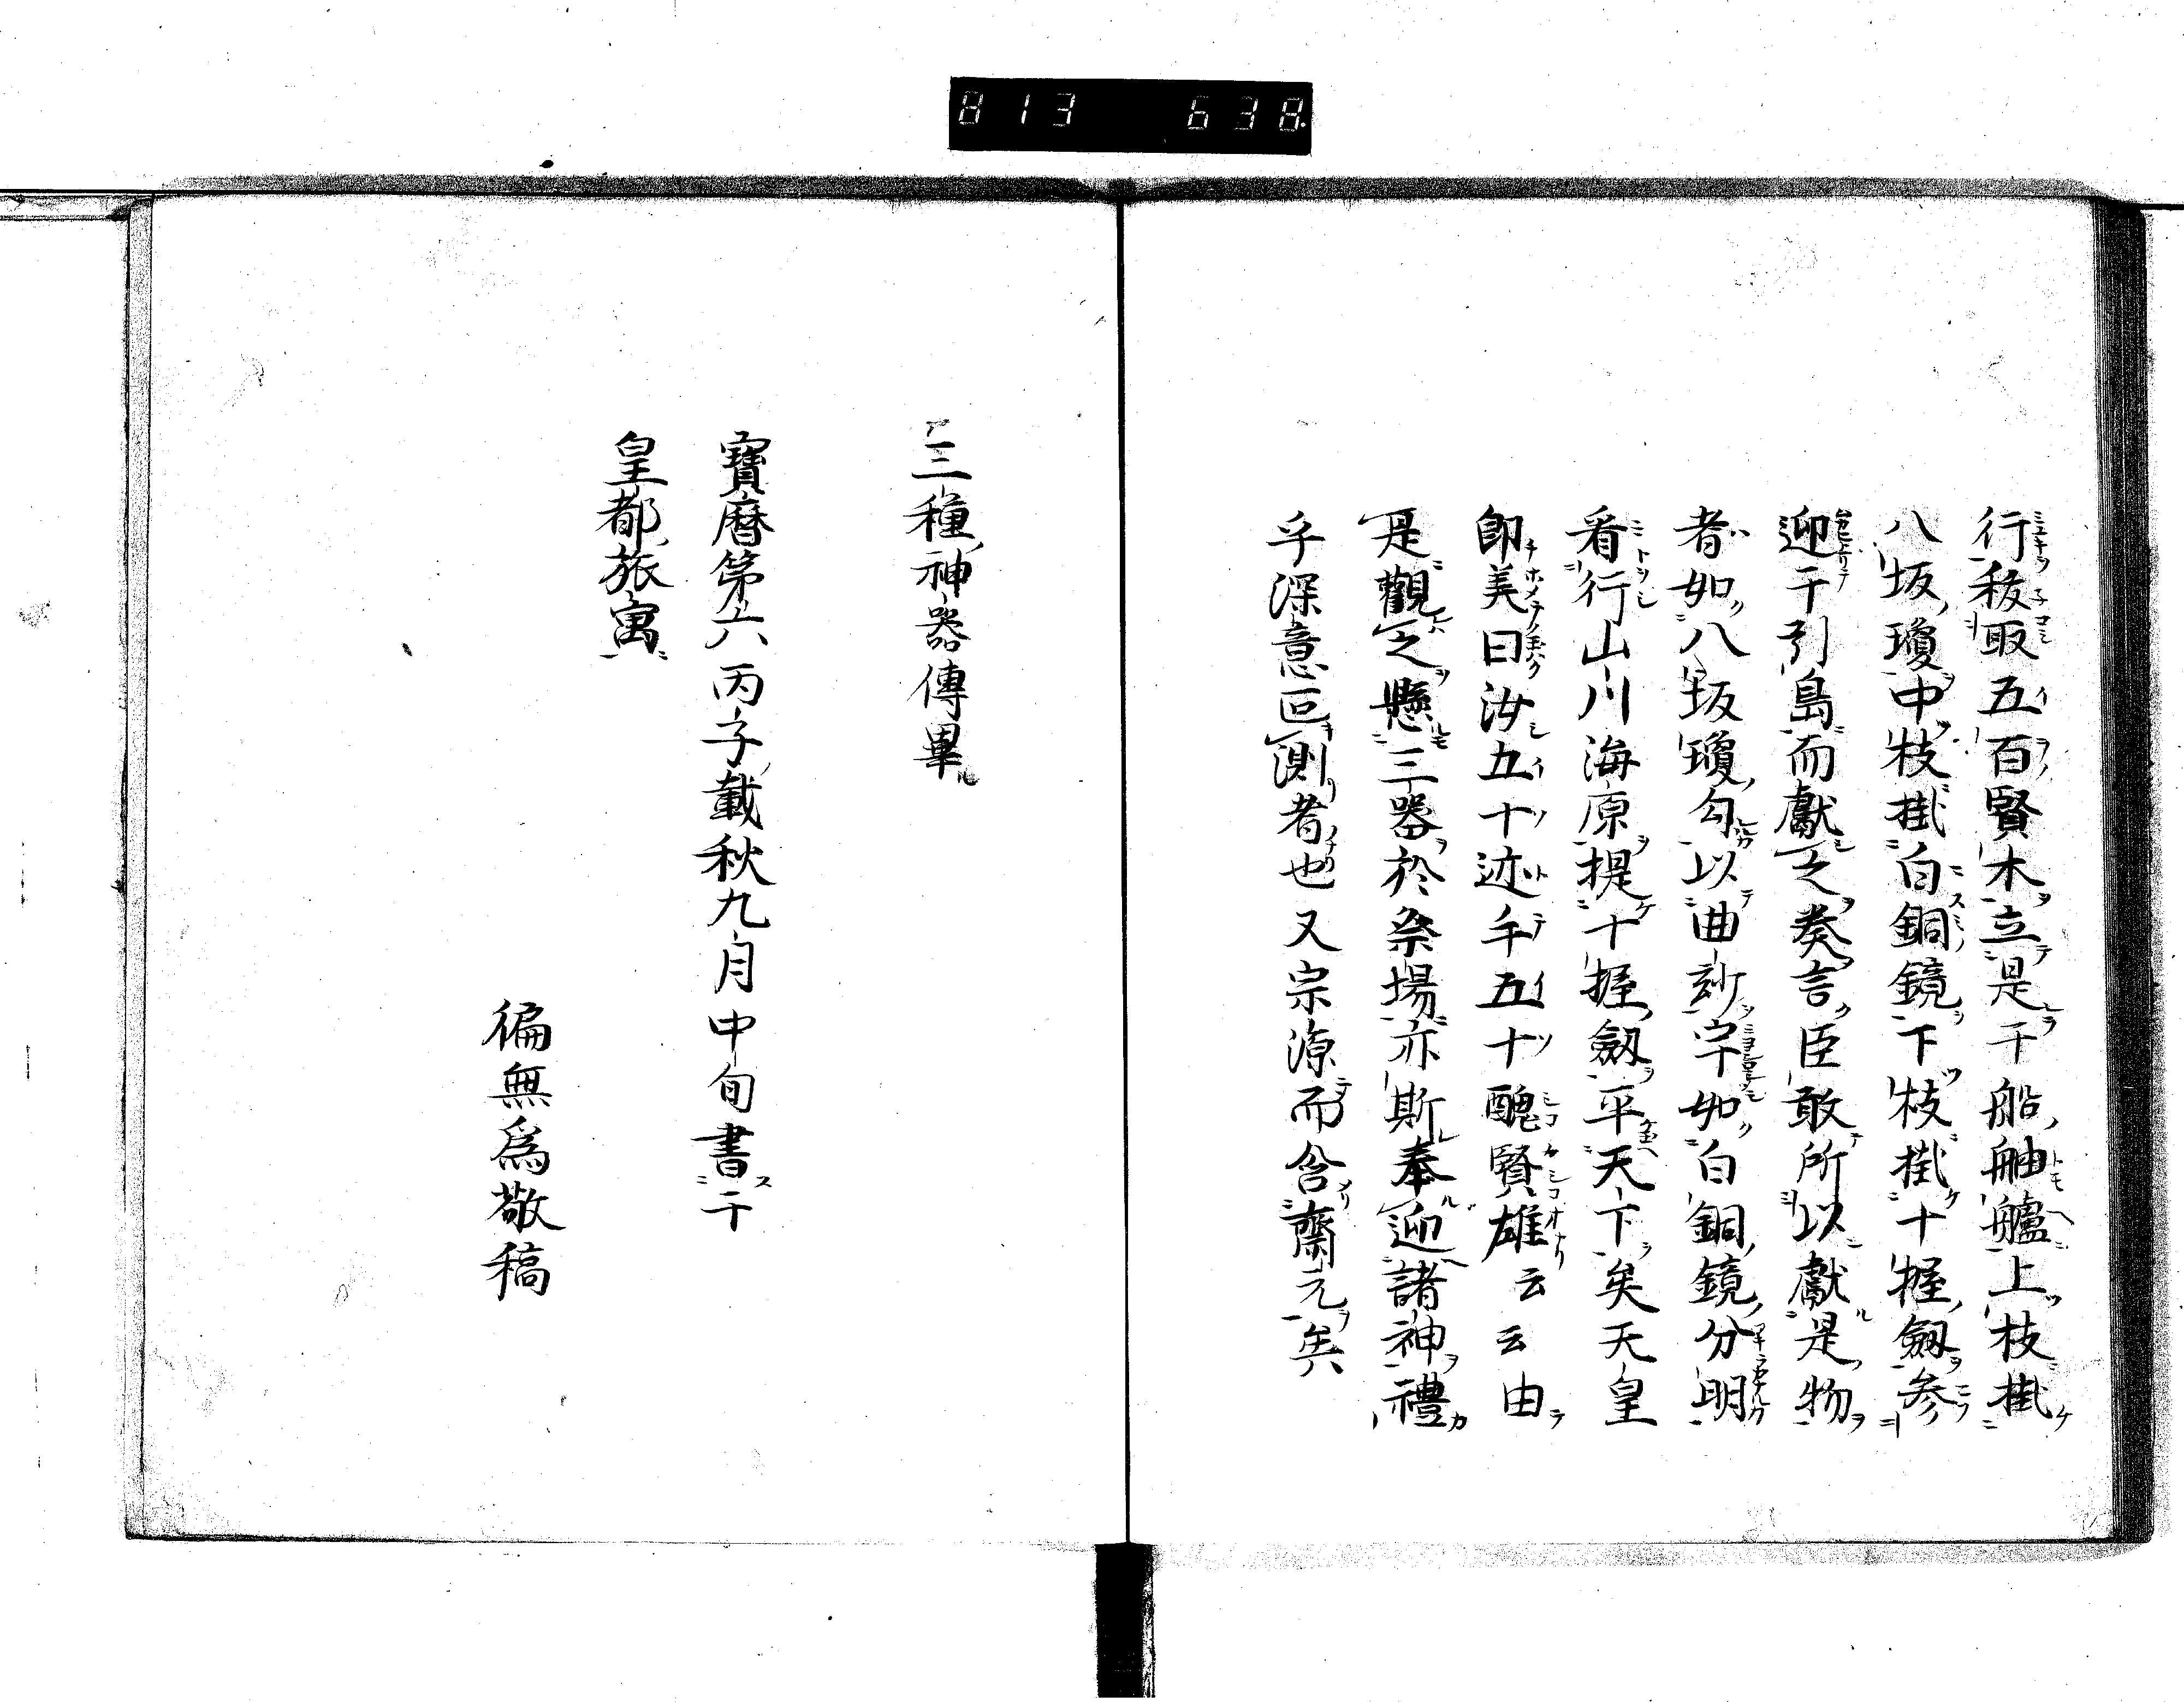 813 638
行拔取五百賢木立是于船舳艫上枝掛
八坂瓊中枝掛白銅鏡下枝掛十握劔参
迎于引島而獻之奏言臣敢所以獻是物
者如八坂瓊勾以曲妙宇如白銅鏡分明
看行山川海原提十握劔平天下矣天皇
即美曰汝五十迹手五十醜賢雄云云由
是觀之懸三器於祭場亦斯奉迎諸神禮
乎深意叵測者也又宗源而含齋元矣
三種神器傳畢
寶暦第六丙子載秋九月中旬書于
皇都旅寓
徧無爲敬稿